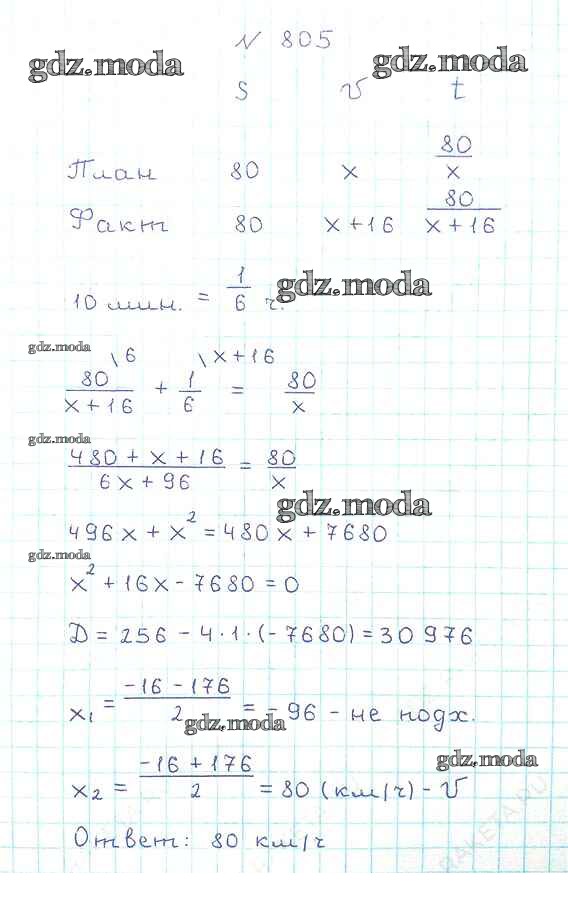 N 805
gdz.moda gdz.moda
S V t
План 80 x 80/x
Факт 80 x+16 80/(x+16)
10 мин. = 1/6 ч. gdz.moda
gdz.moda
\6 \x+16
80/(x+16) + 1/6 = 80/x
gdz.moda
(480+x+16)/(6x+96) = 80/x
gdz.moda
496x + x² = 480x + 7680
gdz.moda
x² + 16x - 7680 = 0
D = 256 - 4·1·(-7680) = 30976
x₁ = (-16-176)/2 = -96 - не подх.
gdz.moda
gdz.moda
x₂ = (-16+176)/2 = 80 (км/ч) - V
Ответ: 80 км/ч
RAKETA.RU